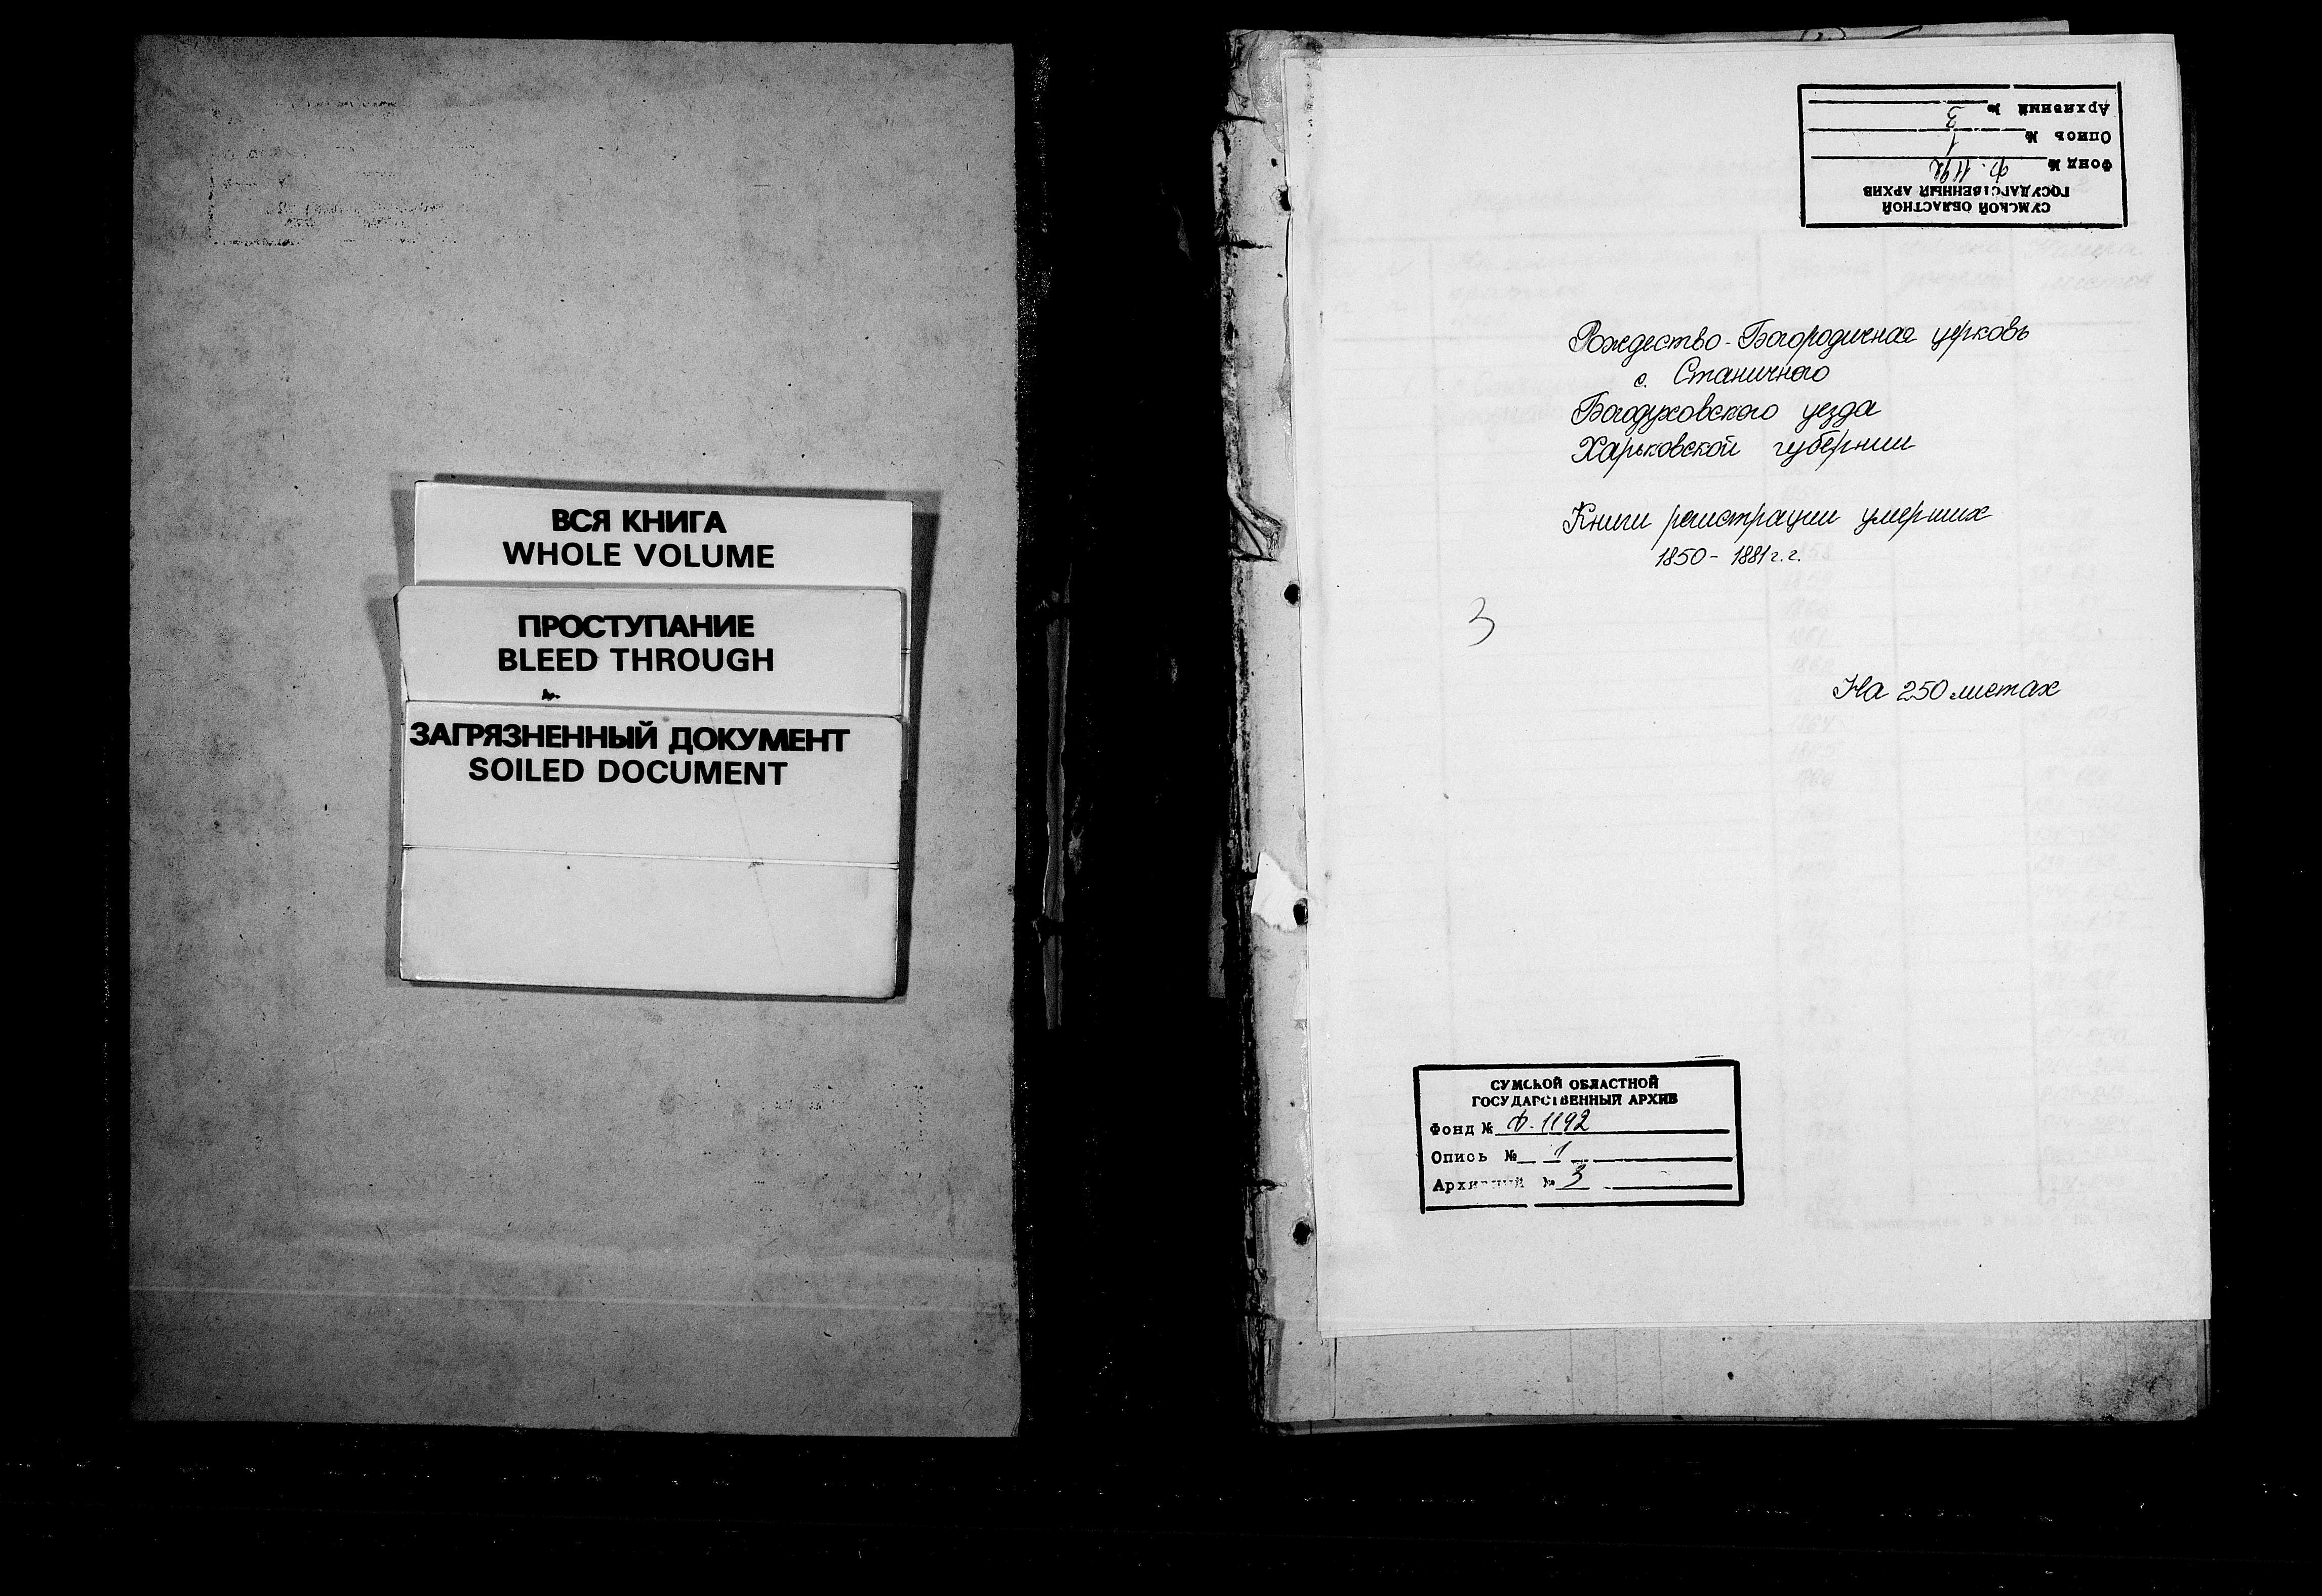 ВСЯ КНИГА
WHOLE VOLUME
ПРОСТУПАНИЕ
BLEED THROUGH
ЗАГРЯЗНЕННЫЙ ДОКУМЕНТ
SOILED DOCUMENT
СУМСКОЙ ОБЛАСТНОЙ
ГОСУДАРСТВЕННЫЙ АРХИВ
Фонд № Ф. 1192
Опись № 1
Архивный № 3
Рождество-Богородичная церковь
с. Станичного
Богодуховского уезда
Харьковской губернии
Книги регистрации умерших
1850 - 1881 г. г.
3
На 250 листах
СУМСКОЙ ОБЛАСТНОЙ
ГОСУДАРСТВЕННЫЙ АРХИВ
Фонд № Ф. 1192
Опись № 1
Архивный № 3